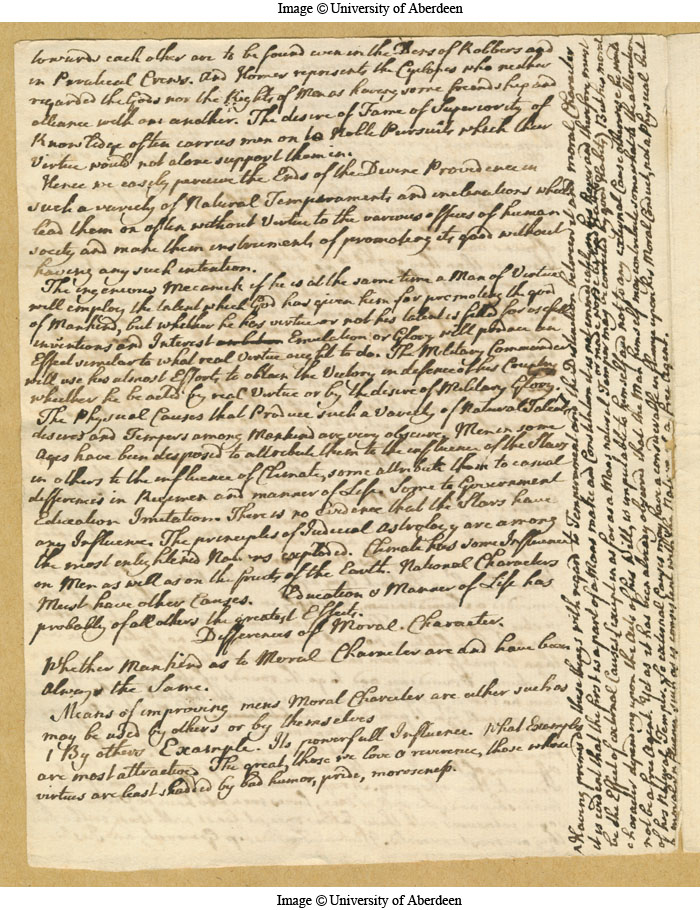 Image © University of Aberdeen
towards each other are to be found even in the Dens of Robbers and
in Piratical Crews. And Homer represents the Cyclopes who neither
regarded the Gods nor the Rights of Men as having some friendship and
alliance with one another. The desire of Fame of Superiority of
Knowledge often carries men on to Noble Pursuits which their
Virtue would not alone support them in.
Hence we easily perceive the Ends of the Divine Providence in
such a variety of Natural Temperaments and inclinations which
lead them on often without Virtue to the various offices of human
society and make them instruments of promoting its good without
having any such intention.
The ingenious Mecanick if he is at the same time a Man of Virtue
will employ the talent which God has given him for promoting the good
of Mankind, but whether he has virtue or not his talent is fitted for usefull
inventions and Interest Emulation or Glory will produce an
Effect similar to what real Virtue ought to do. The Military Commander
will use his utmost Efforts to obtain the Victory in defence of his Country
whether he be acted by real Virtue or by the desire of Military Glory.
The Physical Causes that Produce such a Variety of Natural Talents
desires and Tempers among Mankind are very obscure. Men in some
Ages have been disposed to attribute them to the influence of the Stars
in others to the influence of Climate, some attribute them to casual
differences in Regimen and manner of Life. Some to Government
Education Imitation. There is no Evidence that the Stars have
any Influence. The principles of Judicial Astrology are among
the most enlightened Nations exploded. Climate has some Influence
on Men as well as on the fruits of the Earth. National Characters
Must have other Causes. Education & Manner of Life has
probably of all others the greatest Effect.
Differences of Moral Character.
Whether Mankind as to Moral Character are and have been
always the Same.
Means of improving mens Moral Character are either such as
may be used by others or by themselves
1 By others Example. Its powerfull Influence. What Examples
are most attractive The great, those we love & reverence, those whose
virtues are least shaded by bad humor, pride, moroseness.
A Having premised these things with regard to Temperament and the Distinction between it and moral Character
it is evident that the first is a part of a Mans make and Constitution but not immediately in his Power and therefore must
be the Effect of external Causes (except in as far as a Mans natural Temper may be corrected by good Habits) But his moral
character depending upon the Acts of his Will is imputable to himself and not to any external Cause otherwise he would
not be a free Agent. Yet as it has been already observed that the Man himself may contribute somewhat to the alteration
of his Natural Temper, so external Causes may have a considerable influence upon his Moral Conduct, not a Physical but
a moral Influence such as is consistent with the Nature of a free Agent.
Image © University of Aberdeen